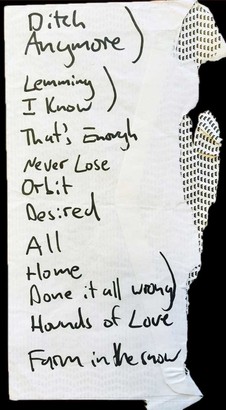 Ditch
Anymore
Lemming
I Know
That's Enough
Never Lose
Orbit
Desired
All
Home
Done it all wrong
Hounds of Love
Farm in the snow